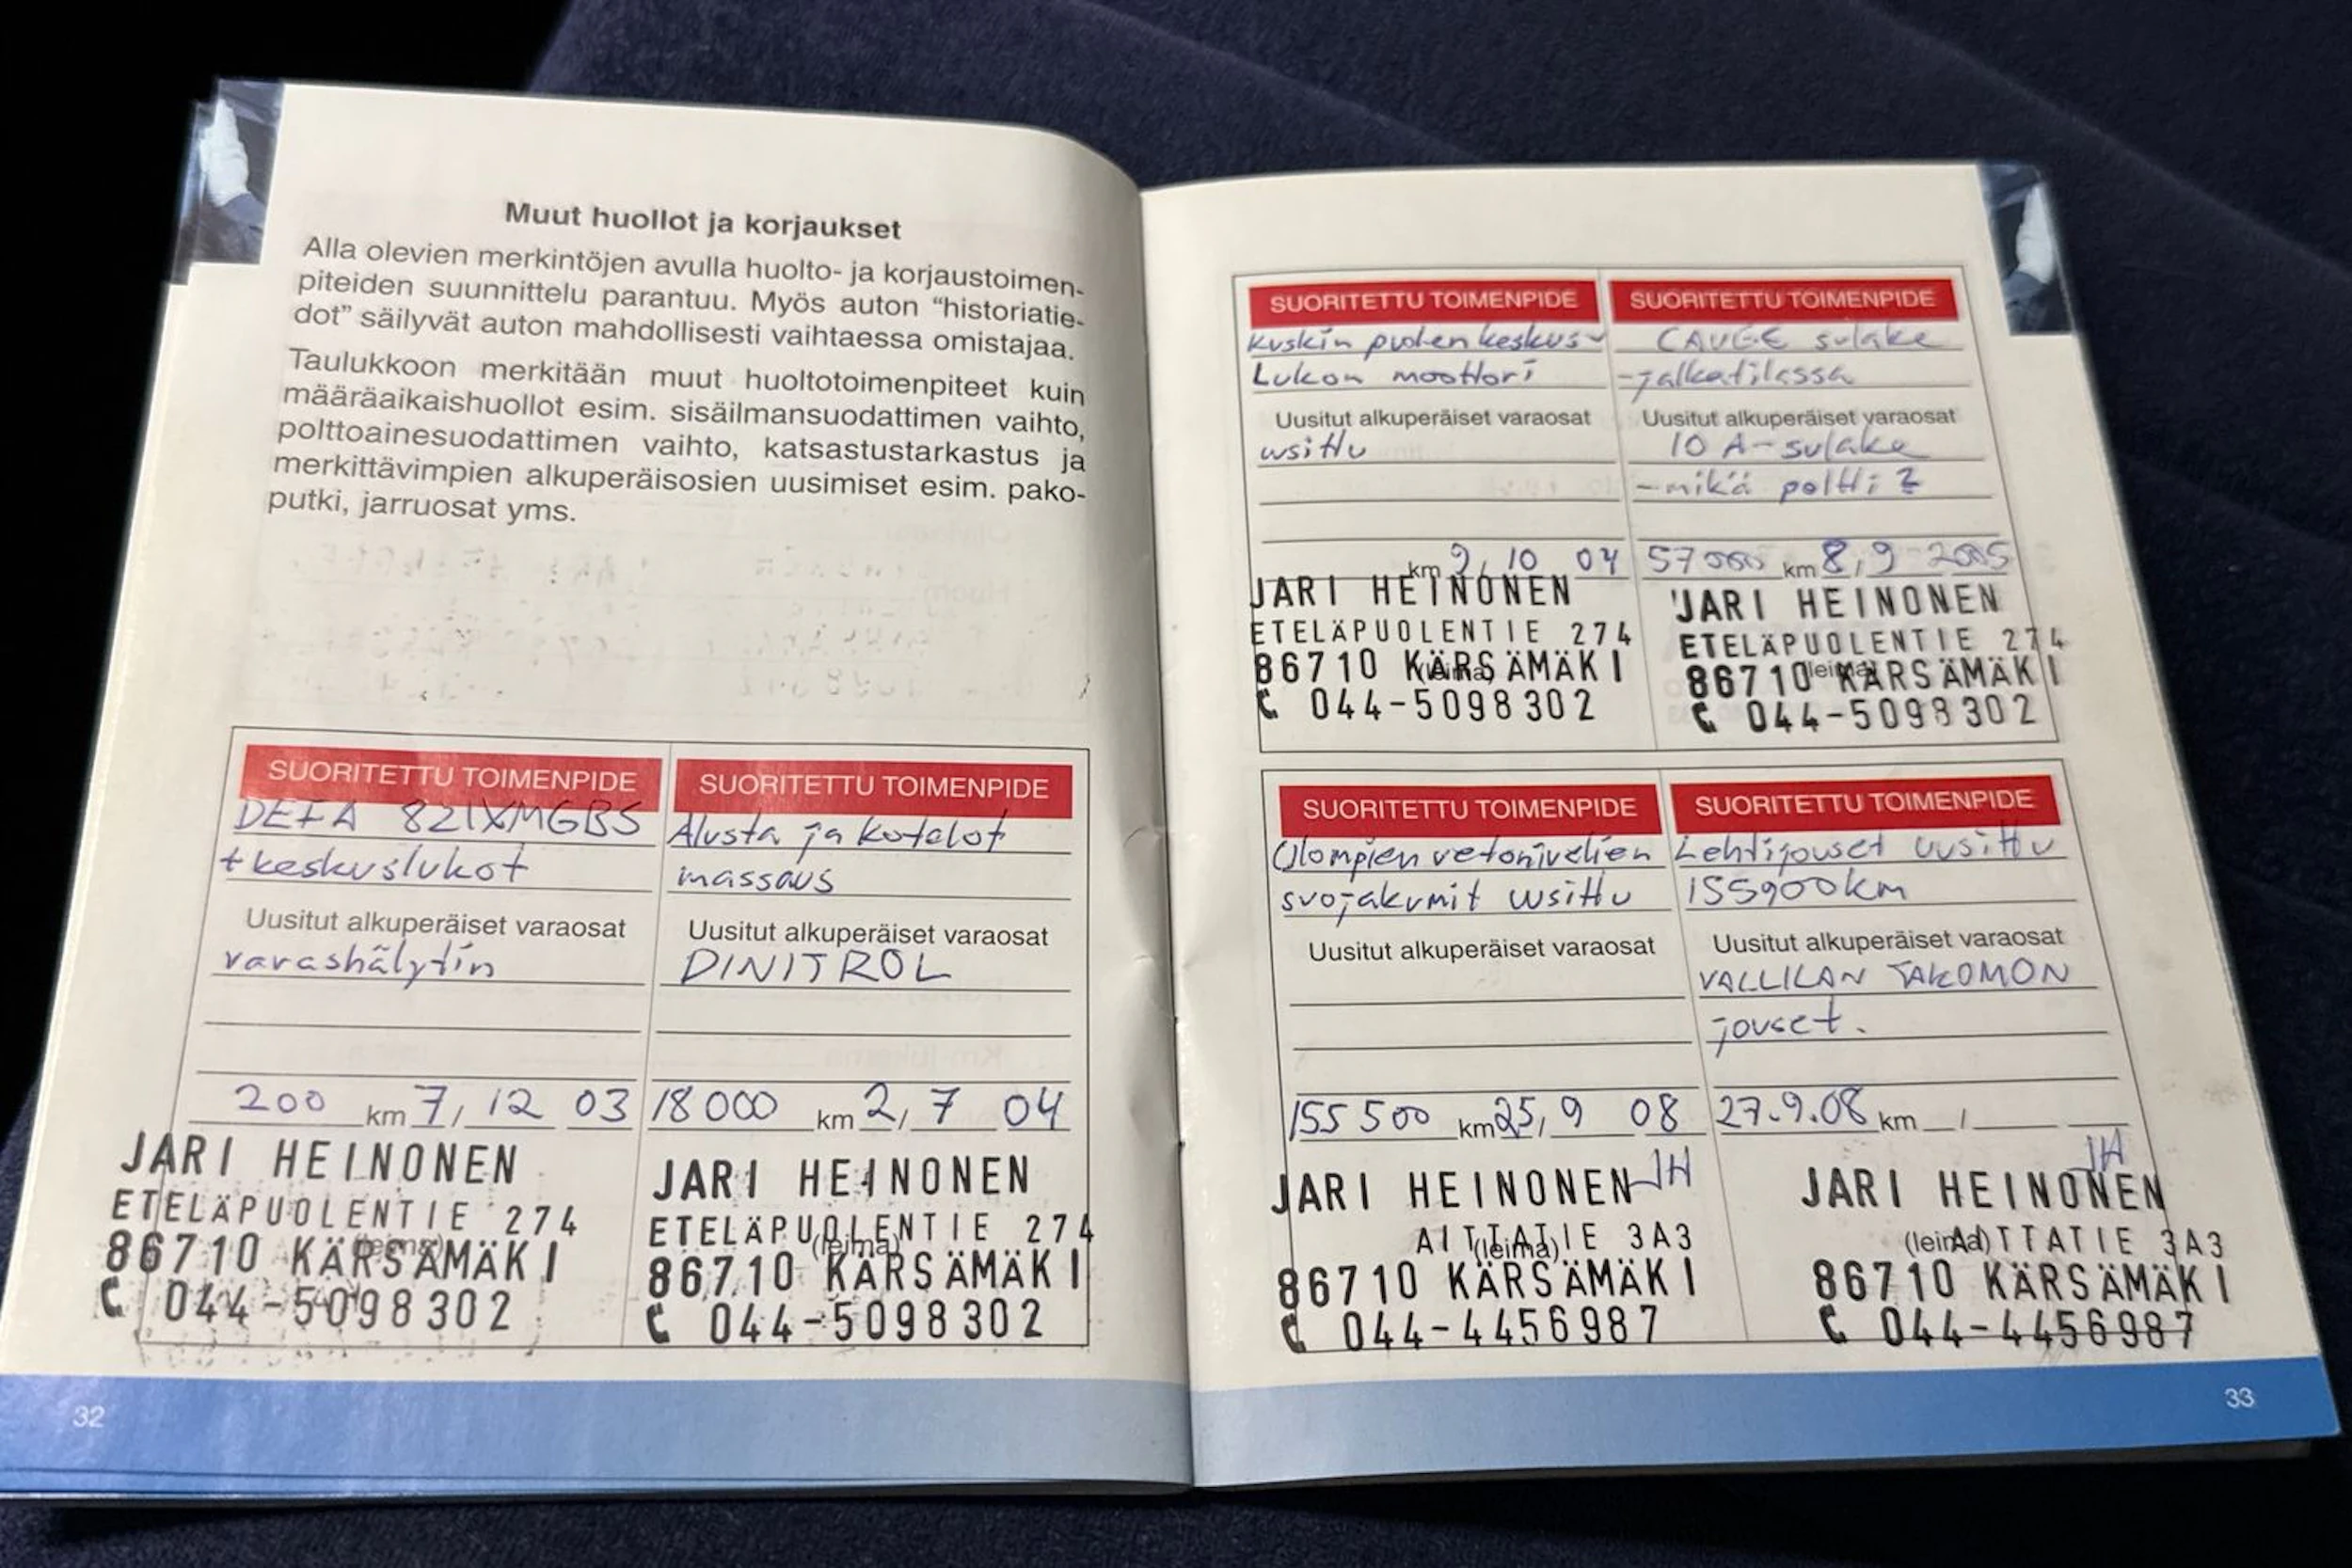 Muut huollot ja korjaukset
Alla olevien merkintöjen avulla huolto- ja korjaustoimen-
piteiden suunnittelu parantuu. Myös auton “historiatie-
dot” säilyvät auton mahdollisesti vaihtaessa omistajaa.
Taulukkoon merkitään muut huoltotoimenpiteet kuin
määräaikaishuollot esim. sisäilmansuodattimen vaihto,
polttoainesuodattimen vaihto, katsastustarkastus ja
merkittävimpien alkuperäisosien uusimiset esim. pako-
putki, jarruosat yms.
SUORITETTU TOIMENPIDE
DEFA 821XMGBS
+ keskuslukot
Uusitut alkuperäiset varaosat
varashälytin
200 km 7, 12 03
JARI HEINONEN
ETELÄPUOLENTIE 274
(leima)
86710 KÄRSÄMÄKI
044-5098302
SUORITETTU TOIMENPIDE
Alusta ja kotelot
massaus
Uusitut alkuperäiset varaosat
DINITROL
18 000 km 2, 7 04
JARI HEINONEN
ETELÄPUOLENTIE 274
(leima)
86710 KÄRSÄMÄKI
044-5098302
32
SUORITETTU TOIMENPIDE
kuskin puolen keskus-
Lukon moottori
Uusitut alkuperäiset varaosat
uusittu
km 9, 10 04
JARI HEINONEN
ETELÄPUOLENTIE 274
86710 KÄRSÄMÄKI
(leima)
044-5098302
SUORITETTU TOIMENPIDE
sulake
-jalkatilassa
Uusitut alkuperäiset varaosat
10 A-sulake
-mikä poltti?
57000 km 8, 9 2005
JARI HEINONEN
ETELÄPUOLENTIE 274
86710 KÄRSÄMÄKI
(leima)
044-5098302
SUORITETTU TOIMENPIDE
Ulompien vetonivelien
suojakumit uusittu
Uusitut alkuperäiset varaosat
155 500 km 25, 9 08
JH
JARI HEINONEN
AITTATIE 3A3
(leima)
86710 KÄRSÄMÄKI
044-4456987
SUORITETTU TOIMENPIDE
Lehtijouset uusittu
155900km
Uusitut alkuperäiset varaosat
VALLILAN TAKOMON
jouset.
27.9.08 km /
JH
JARI HEINONEN
(leima) AITTATIE 3A3
86710 KÄRSÄMÄKI
044-4456987
33